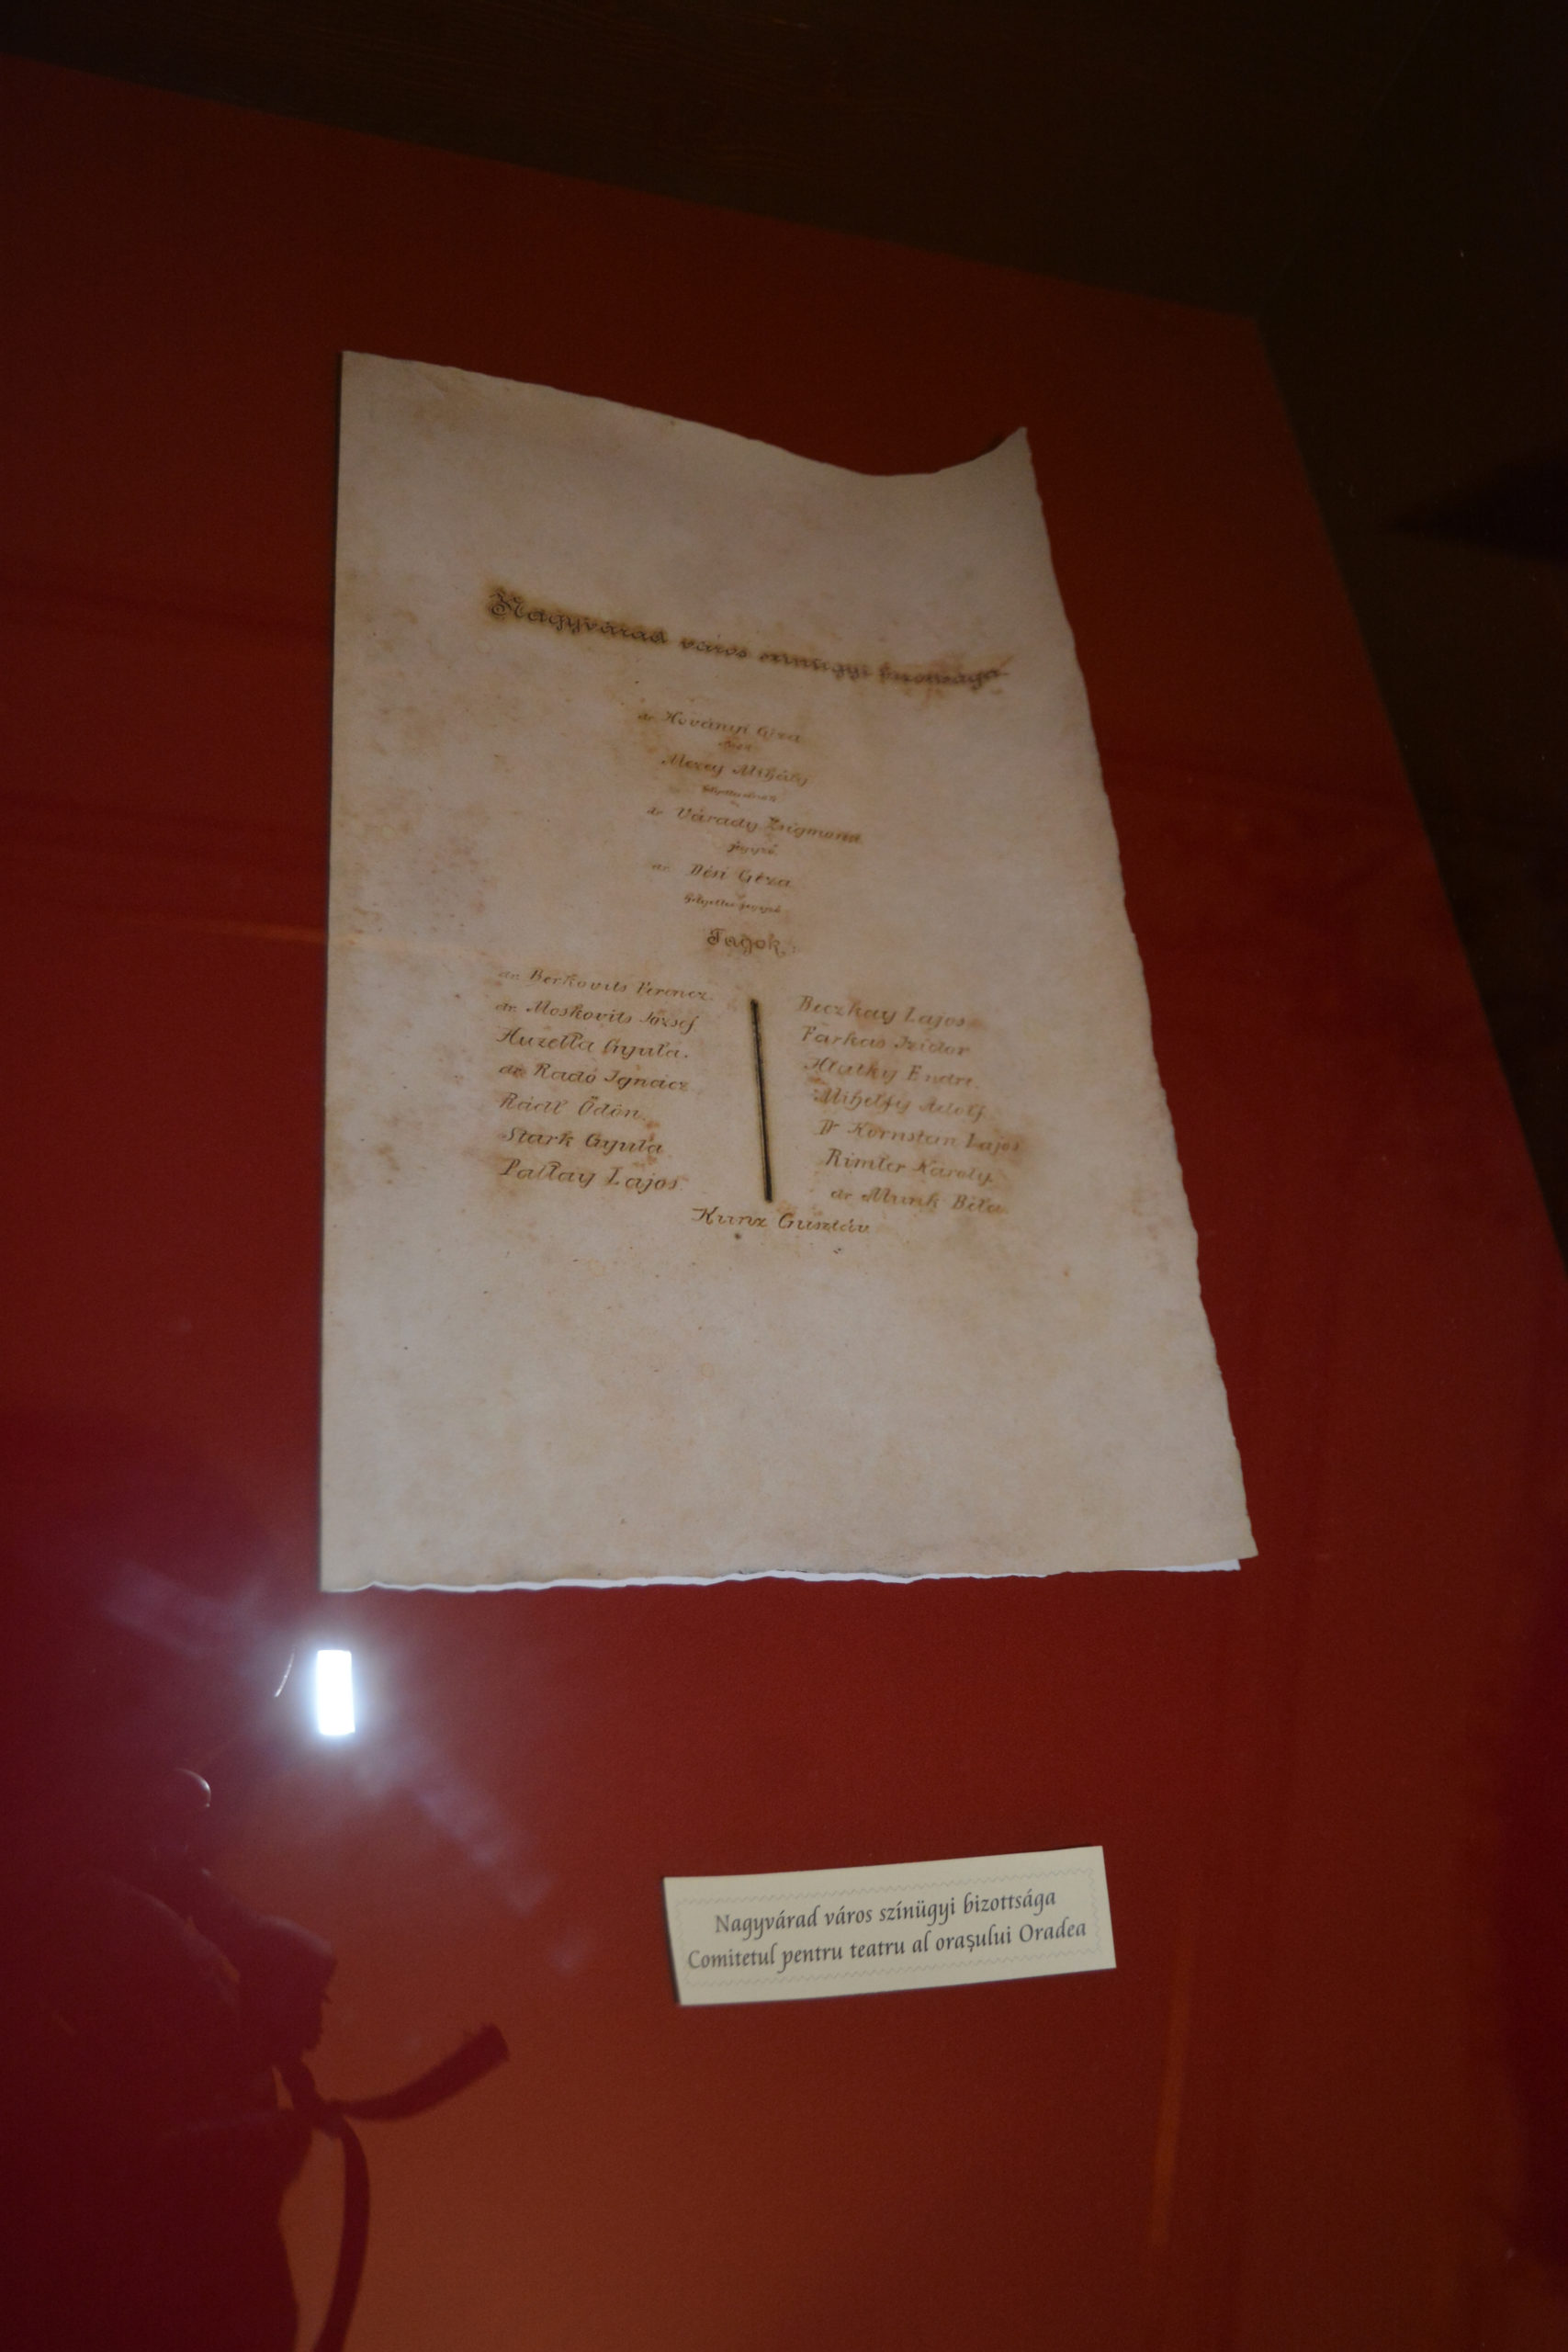 Nagyvárad város színügyi bizottsága
dr Hoványi Géza
elnök
Mezey Mihály
helyettes elnök
dr Várady Zsigmond
jegyző
dr Dési Géza
helyettes jegyző
Tagok:
dr. Berkovits Ferencz.
dr. Moskovits József
Huzella Gyula.
dr. Radó Ignácz
Rádl Ödön.
Stark Gyula
Pallay Lajos.
Beczkay Lajos
Farkas Izidor
Hlatky Endre.
Mihelfy Adolf
Dr Kornstein Lajos
Rimler Károly.
dr Munk Béla.
Kunz Gusztáv
Nagyvárad város színügyi bizottsága
Comitetul pentru teatru al orașului Oradea